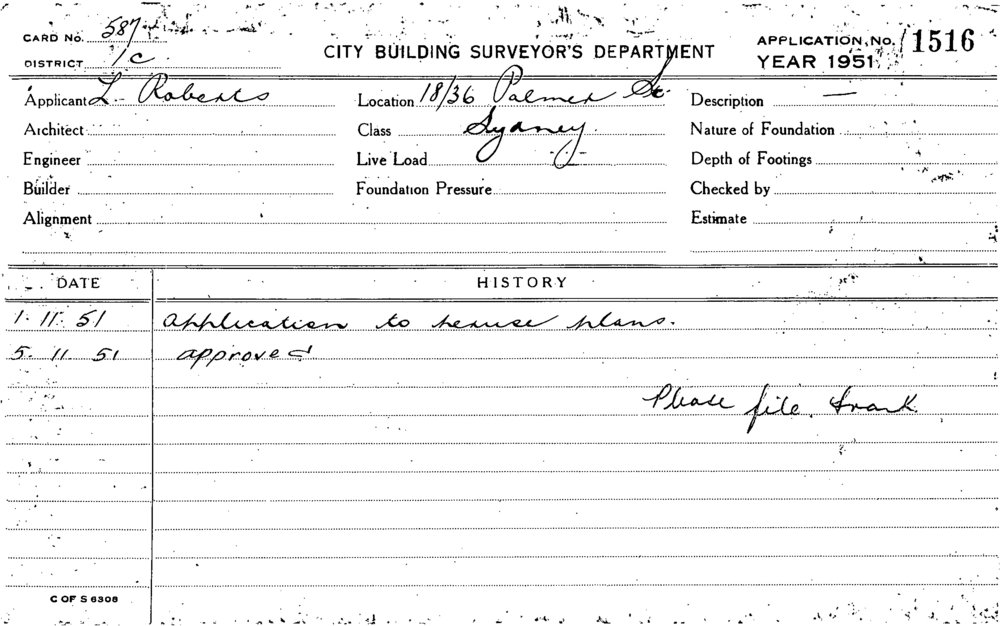 CARD No. 587
DISTRICT 1C
CITY BUILDING SURVEYOR'S DEPARTMENT
APPLICATION No. 1516
YEAR 1951
Applicant L. Roberts
Location 18/36 Palmer St.
Description —
Architect
Class Sydney.
Nature of Foundation
Engineer
Live Load
Depth of Footings
Builder
Foundation Pressure
Checked by
Alignment
Estimate
DATE HISTORY
1. 11. 51 Application to peruse plans.
5. 11. 51 approved
Please file. Frank
C OF S 6308